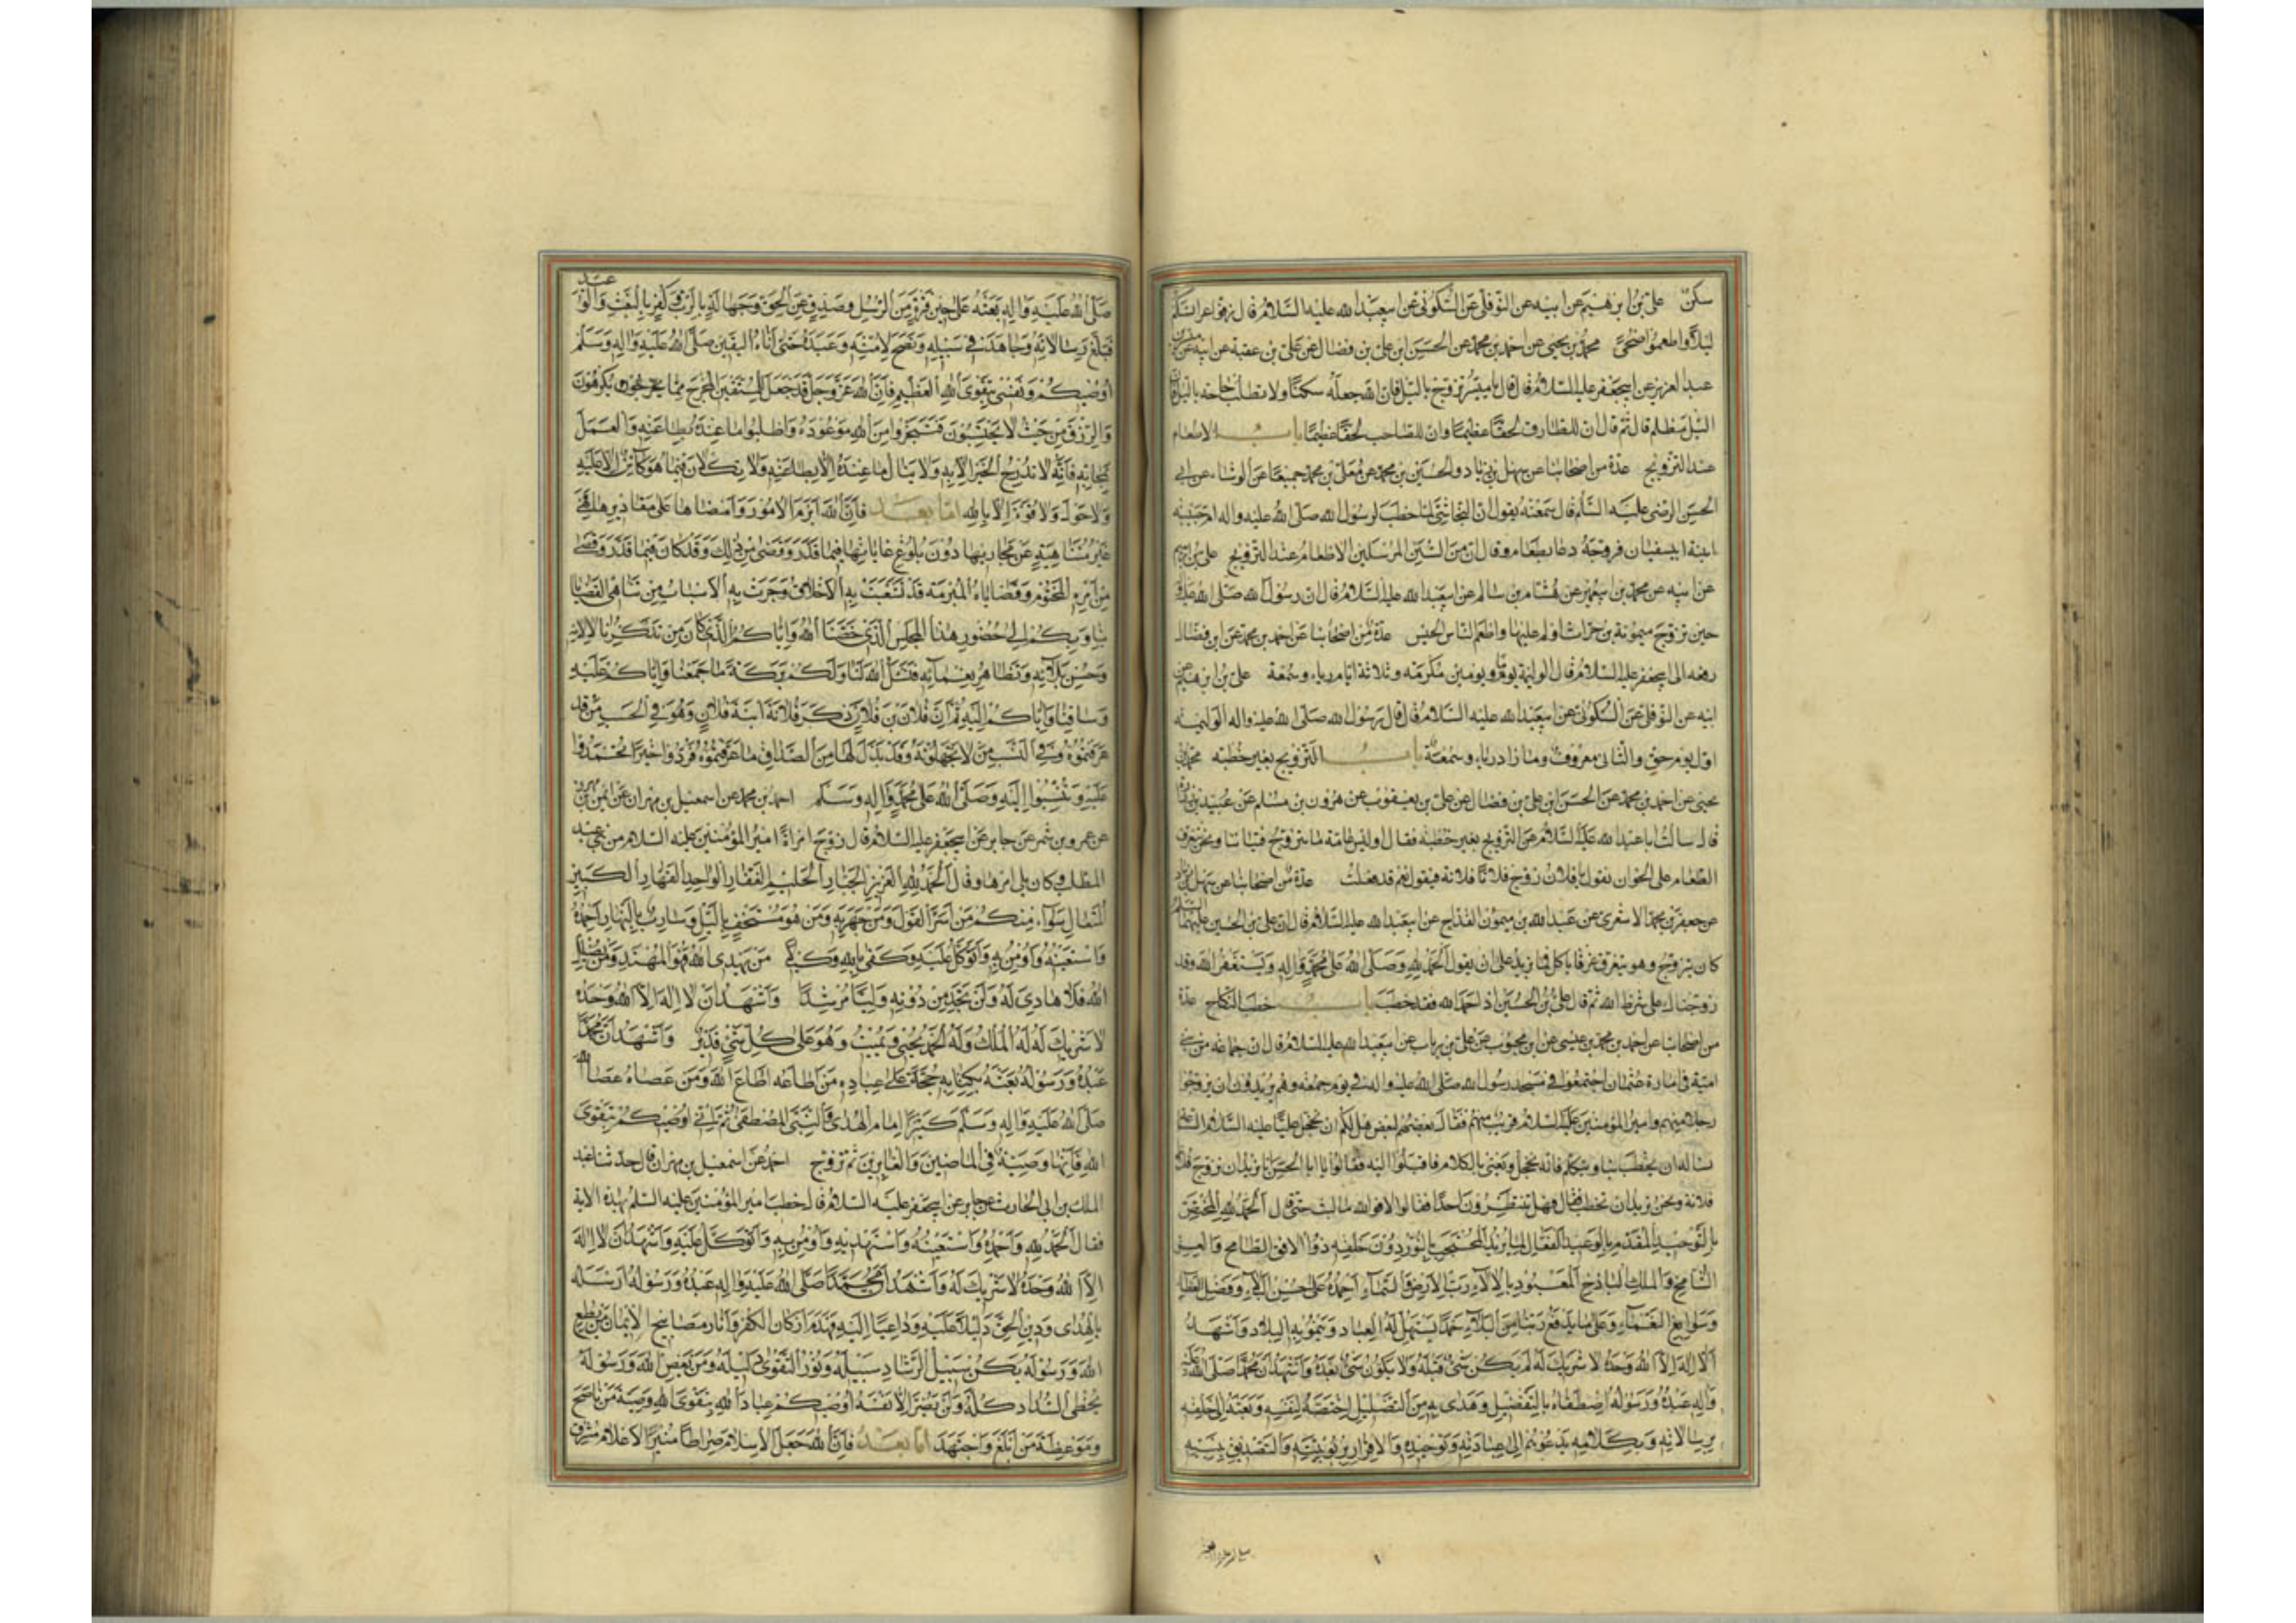 سكن علي بن ابرهيم عن ابيه عن النوفلي عن السكوني عن ابيعبد الله عليه السلام قال زفوا عرائسكم
ليلا واطعموا ضحى محمد بن يحيى عن احمد بن محمد عن الحسين ابن علي بن فضال عن علي بن عقبة عن ابيه عن
عبد العزيز عن ابيجعفر عليه السلام قال قال يا ميسر تزوج بالليل فان الله جعله سكنا ولا تطلب حاجة بالليل فان
الليل مظلم قال ثم قال ان للطارق لحقا عظيما وان للصاحب لحقا عظيما باب الاطعام
عند التزويج عدة من اصحابنا عن سهل بن زياد والحسين بن محمد عن معلى بن محمد جميعا عن الوشاء عن ابي
الحسن الرضي عليه السلم قال سمعته يقول ان النجاشي لما خطب لرسول الله صلى الله عليه واله ام حبيبه
ابنة ابيسفيان فزوجه دعا بطعام وقال ان من سنن المرسلين الاطعام عند التزويج علي بن ابرهيم
عن ابيه عن محمد بن ابيعمير عن هشام بن سالم عن ابيعبد الله عليه السلام قال ان رسول الله صلى الله عليه واله
حين تزوج ميمونة بنت حراث اولم عليها واطعم الناس الحيس عدة من اصحابنا عن احمد بن محمد عن ابن فضال
رفعه الى ابيجعفر عليه السلام قال الوليمة يوم ويومين مكرمه وثلاثة ايام رياء وسمعة علي بن ابرهيم عن
ابيه عن النوفلي عن السكوني عن ابيعبد الله عليه السلام قال قال رسول الله صلى الله عليه واله الوليمه
اول يوم حق والثاني معروف وما زاد رياء وسمعة باب التزويج بغير خطبه محمد بن
يحيى عن احمد بن محمد عن الحسن ابن علي بن فضال عن علي بن يعقوب عن هرون بن مسلم عن عبيد بن زرارة
قال سالت ابا عبد الله عليه السلام عن التزويج بغير خطبه فقال اوليس عامة ما يتزوج فتياننا ونحن نتعرق
الطعام على الخوان نقول يا فلان زوج فلانا فلانة فيقول نعم قد فعلت عدة من اصحابنا عن سهل بن زياد
عن جعفر بن محمد الاشعري عن عبد الله بن ميمون القداح عن ابيعبد الله عليه السلام قال ان علي بن الحسين عليهما السلم
كان يتزوج وهو يتعرق عرقا ياكل فما يزيد على ان يقول الحمد لله وصلى الله على محمد واله ويستغفر الله وقد
زوجناك على شرط الله ثم قال علي بن الحسين اذا حمد الله فقد خطب باب خطب النكاح عدة
من اصحابنا عن احمد بن محمد بن عيسى عن ابن محبوب عن علي بن رياب عن ابيعبد الله عليه السلام قال ان جماعه من بني
امية في امارة عثمان اجتمعوا في مسجد رسول الله صلى الله عليه واله في يوم جمعه وهم يريدون ان يزوجوا
رجلا منهم وامير المؤمنين عليه السلام قريب منهم فقال بعضهم لبعض هل لكم ان نخجل عليا عليه السلام الساعة
نساله ان يخطب بنا ويتكلم فانه يخجل ويعيى بالكلام فاقبلوا اليه فقالوا يا ابا الحسن انا نريد ان نزوج فلانا
فلانة ونحن نريد ان تخطب فقال فهل تنتظرون احدا فقالوا لا فوالله ما لبث حتى قال الحمد لله المختص
بالتوحيد المقدم بالوعيد الفعال لما يريد المحتجب بالنور دون خلقه ذو الافق الطامح والعز
الشامخ والملك الباذخ المعبود بالالاء رب الارض والسماء احمده على حسن البلاء وفضل العطاء
وسوابغ النعماء وعلى ما يدفع ربنا من البلاء حمدا يستهل له العباد وينمو به البلاد واشهد
ان لا اله الا الله وحده لا شريك له لم يكن شيء قبله ولا يكون شيء بعده واشهد ان محمدا صلى الله عليه
واله عبده ورسوله اصطفاه بالتفضيل وهدى به من التضليل اختصه لنفسه وبعثه الى خلقه
برسالاته وبكلامه يدعوهم الى عبادته وتوحيده والاقرار بربوبيته والتصديق بنبيه
صلى الله عليه واله بعثه على حين فترة من الرسل وصدف عن الحق وجهالة بالرب وكفر بالبعث والوعيد
فبلغ رسالاته وجاهد في سبيله ونصح لامته وعبده حتى اتاه اليقين صلى الله عليه واله وسلم
اوصيكم ونفسي بتقوى الله العظيم فان الله عز وجل قد جعل للمتقين المخرج مما يكرهون
والرزق من حيث لا يحتسبون فتنجزوا من الله موعوده واطلبوا ما عنده بطاعته والعمل
بمحابه فانه لا يدرك الخير الا به ولا ينال ما عنده الا بطاعته ولا تكلان فيما هو كائن الا عليه
ولا حول ولا قوة الا بالله اما بعد فان الله ابرم الامور وامضاها على مقاديرها فهي
غير متناهية عن مجاريها دون بلوغ غاياتها فيما قدر وقضى من ذلك وقد كان فيما قدر وقضى
من امره المحتوم وقضاياه المبرمة قد تشعبت به الاخلاف وجرت به الاسباب من تناهي القضايا
بنا وبكم الى حضور هذا المجلس الذي خصنا الله واياكم للذي كان من تذكرنا الائه
وحسن بلائه وتظاهر نعمائه فنسئل الله لنا ولكم بركة ما جمعنا واياكم عليه
وساقنا واياكم اليه ثم ان فلان بن فلان ذكر فلانة ابنة فلان وهو في الحسب من قد
عرفتموه وفي النسب من لا تجهلونه وقد بذل لها من الصداق ما عرفتموه فردوا خيرا تحمدوا
عليه وتنسبوا اليه وصلى الله على محمد واله وسلم احمد بن محمد عن اسمعيل بن مهران عن ايمن بن محرز
عن عمرو بن شمر عن جابر عن ابيجعفر عليه السلام قال زوج امير المؤمنين عليه السلام امراة من بني عبد
المطلب وكان يلي امرها وقال الحمد لله العزيز الجبار الحليم الغفار الواحد القهار الكبير
المتعال سواء منكم من اسر القول ومن جهر به ومن هو مستخف بالليل وسارب بالنهار احمده
واستعينه واومن به واتوكل عليه وكفى بالله وكيلا من يهدي الله فهو المهتد ومن يضلل
الله فلا هادي له ولن تجد من دونه وليا مرشدا واشهد ان لا اله الا الله وحده
لا شريك له له الملك وله الحمد يحيي ويميت وهو على كل شيء قدير واشهد ان محمدا
عبده ورسوله بعثه بكتابه حجة على عباده من اطاعه اطاع الله ومن عصاه عصا الله
صلى الله عليه واله وسلم كثيرا امام الهدى والنبي المصطفى ثم اني اوصيكم بتقوى
الله فانها وصية الله في الماضين والغابرين ثم تزوج احمد عن اسمعيل بن مهران قال حدثنا عبد
الملك بن ابي الحارث عن جابر عن ابيجعفر عليه السلام قال خطب امير المؤمنين عليه السلم بهذه الاية
فقال الحمد لله واحمده واستعينه واستهديه واومن به واتوكل عليه واشهد ان لا اله
الا الله وحده لا شريك له واشهد ان محمدا صلى الله عليه واله عبده ورسوله ارسله
بالهدى ودين الحق دليلا عليه وداعيا اليه فهدم اركان الكفر وانار مصابيح الايمان من يطع
الله ورسوله يكن سبيل الرشاد سبيله ونور التقوى دليله ومن يعص الله ورسوله
يخطى السداد كله ولن يضر الا نفسه اوصيكم عباد الله بتقوى الله وصية من ناصح
وموعظة من ابلغ واجتهد اما بعد فان الله جعل الاسلام صراطا منير الاعلام مشرق